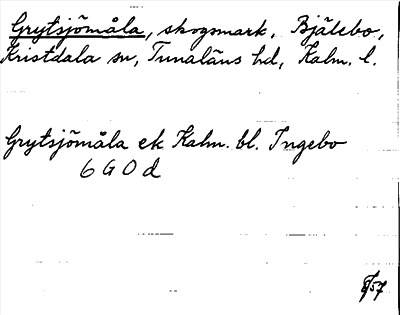 Grytsjömåla, skogsmark, Bjälebo,
Kristdala sn, Tunaläns hd, Kalm. l.
Grytsjömåla ek Kalm. bl. Ingebo
6 G O d